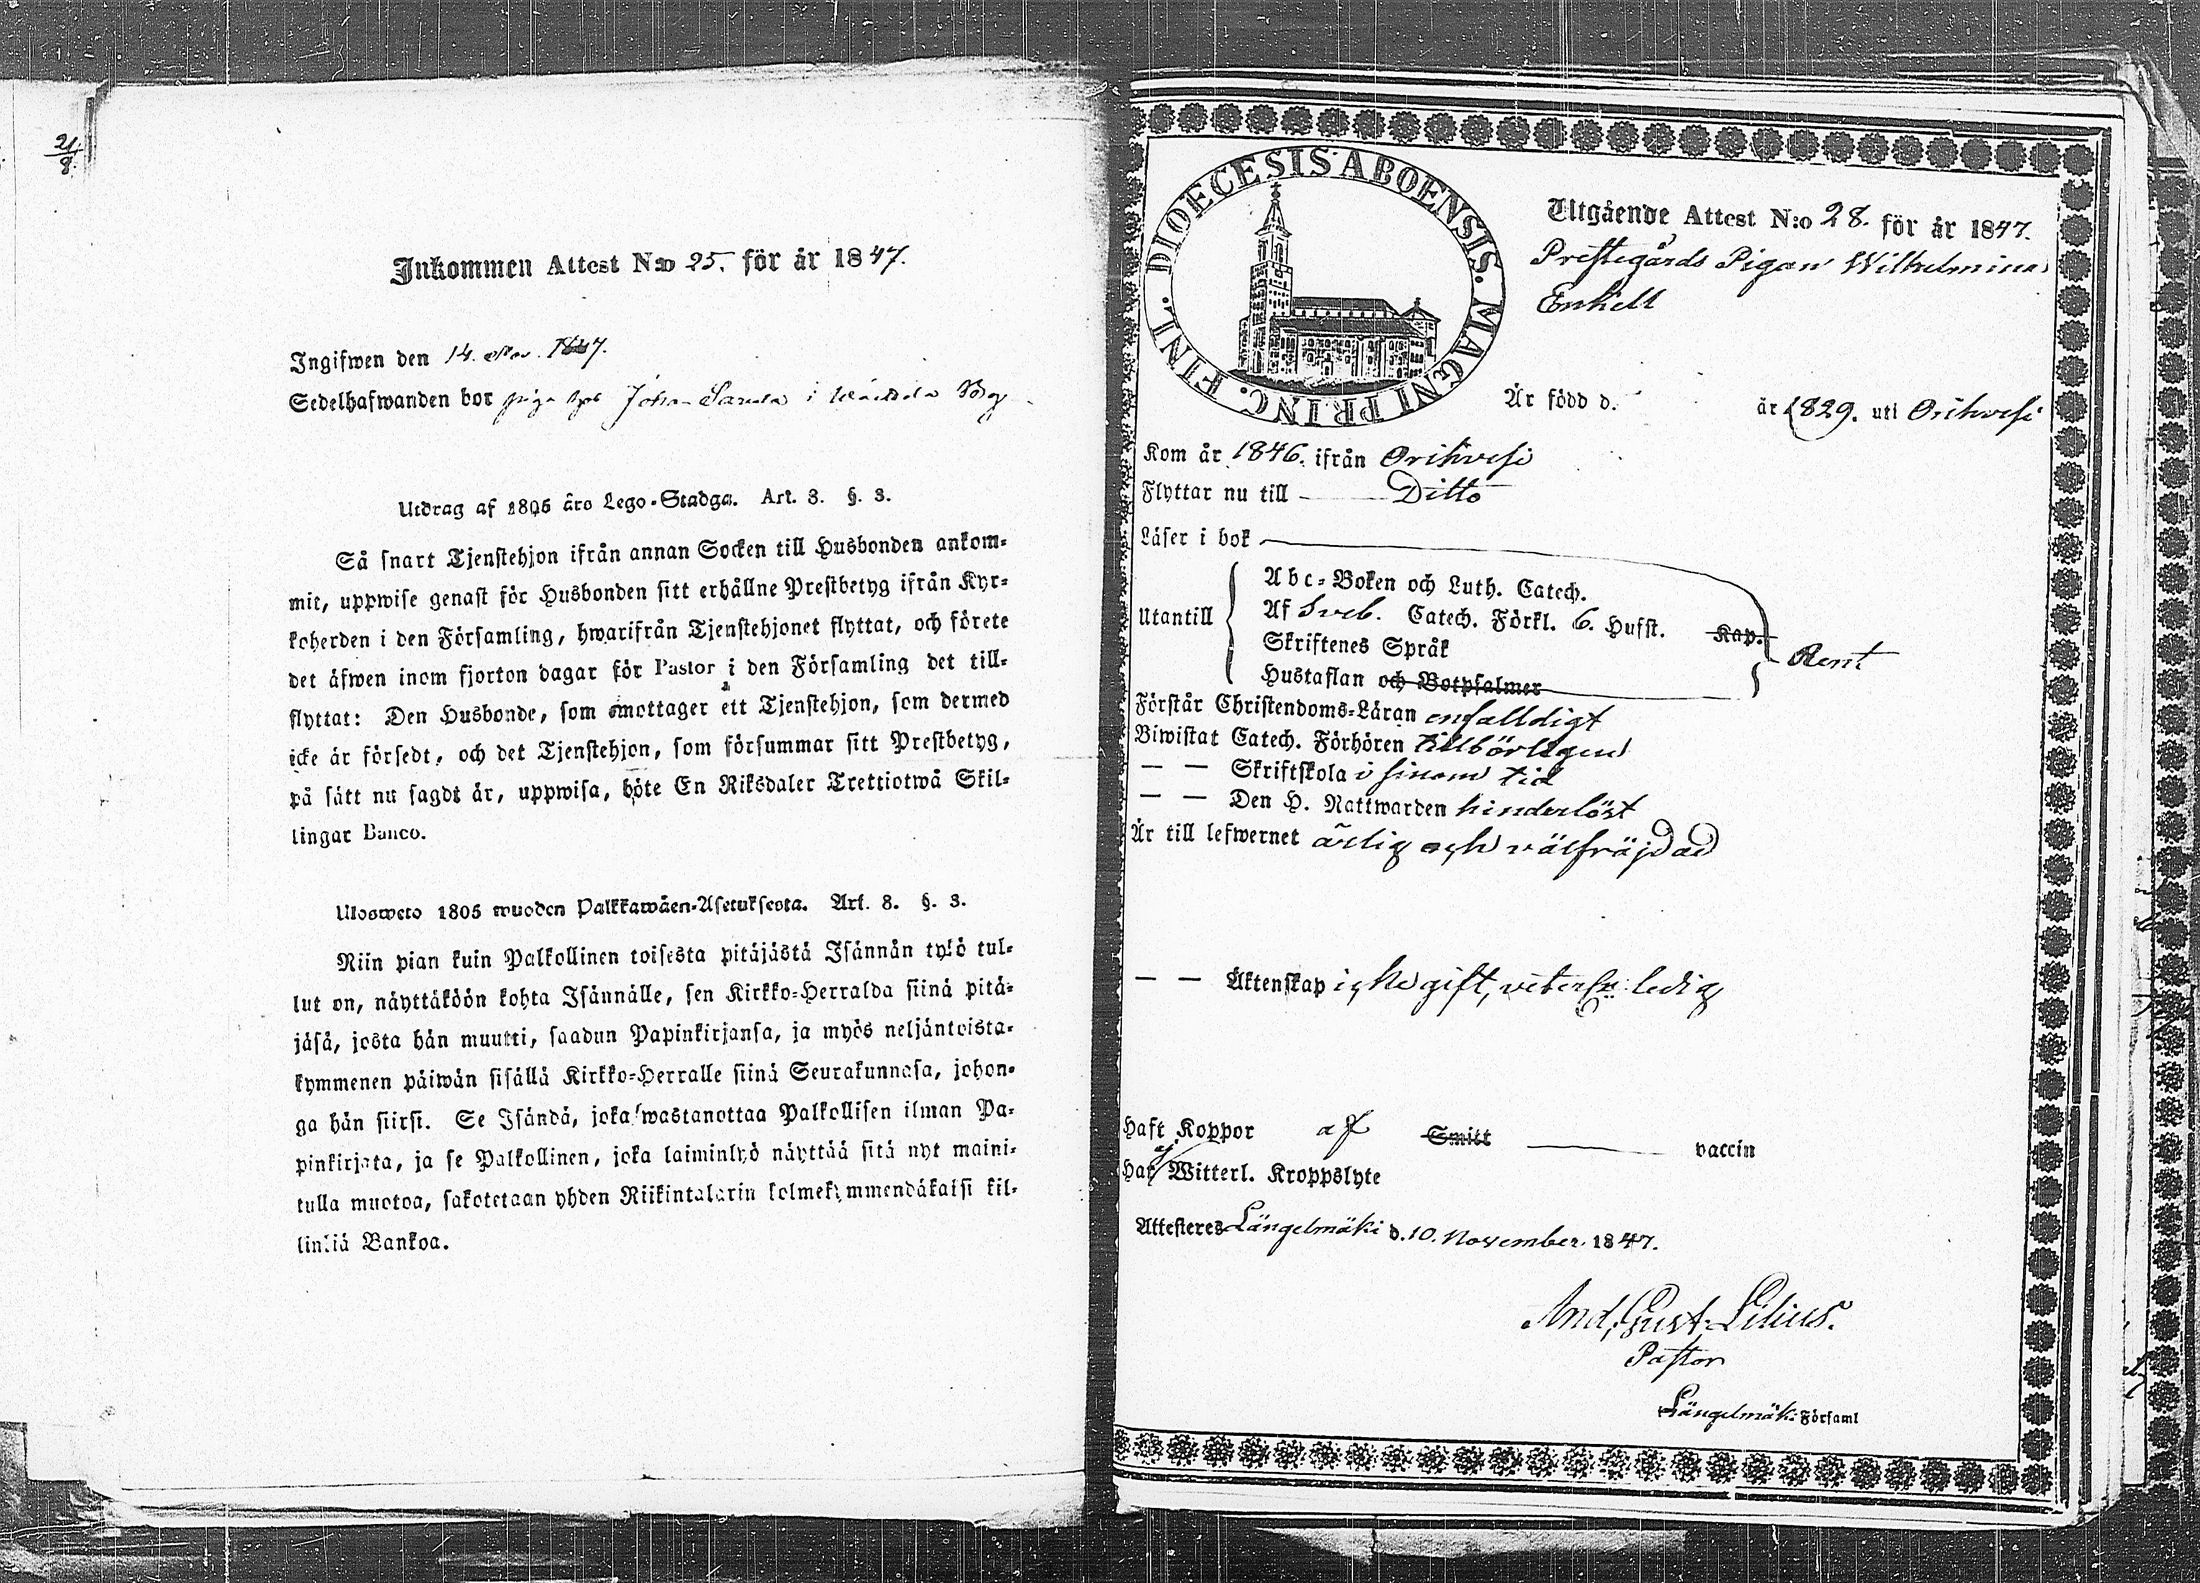 21/9.
Inkommen Attest N:o 25. för år 1847.
Ingifwen den 14. 1847.
Sedelhafwanden bor piga hos Johan i
Utdrag af 1805 års Lego-Stadga. Art. 3. §. 3.
Så snart Tjenstehjon ifrån annan Socken till Husbonden ankom-
mit, uppwise genast för Husbonden sitt erhållne Prestbetyg ifrån Kyr-
koherden i den Församling, hwarifrån Tjenstehjonet flyttat, och förete
det äfwen inom fjorton dagar för Pastor i den Församling det till-
flyttat: Den Husbonde, som emottager ett Tjenstehjon, som dermed
icke är försedt, och det Tjenstehjon, som försummar sitt Prestbetyg,
på sätt nu sagdt är, uppwisa, böte En Riksdaler Trettiotwå Skil-
lingar Banco.
Ulosweto 1805 wuoden Palkkawäen-Asetuksesta. Art. 3. §. 3.
Niin pian kuin Palkollinen toisesta pitäjästä Isännän tykö tul-
lut on, näyttäköön kohta Isännälle, sen Kirkko-Herralda siinä pitä-
jäsä, josta hän muutti, saadun Papinkirjansa, ja myös neljäntoista-
kymmenen päiwän sisällä Kirkko-Herralle siinä Seurakunnasa, johon-
ga hän siirsi. Se Isändä, joka wastanottaa Palkollisen ilman Pa-
pinkirjata, ja se Palkollinen, joka laiminlyö näyttää sitä nyt maini-
tulla muotoa, sakotetaan yhden Riikintalarin kolmekymmendäkaksi kil-
linkiä Bankoa.
DIOECESIS ABOENSIS. MAGNI PRINC. FINL.
Utgående Attest N:o 28. för år 1847.
Prestegårds Pigan Wilhelmina
Enkell
Är född d. år 1829. uti Orihvesi
Kom år 1846. ifrån Orihvesi
Flyttar nu till Ditto
Läser i bok
Utantill
Abc-Boken och Luth. Catech.
Af Sveb. Catech. Förkl. 6. Hufst. Kap.
Skriftenes Språk
Hustaflan och Botpsalmer
Rent
Förstår Christendoms-Läran enfalldigt
Biwistat Catech. Förhören tillbörligen
— — Skriftskola i sinom tid
— — Den H. Nattwarden hinderlöst
Är till lefwernet ärlig och välfräjdad
— — Äktenskap icke gift, veterl:n ledig
Haft Koppor af Smitt vaccin
Har ej Witterl. Kroppslyte
Attesteres Längelmäki d. 10. November 1847.
And. Gust. Lilius.
Pastor
Längelmäki Församl